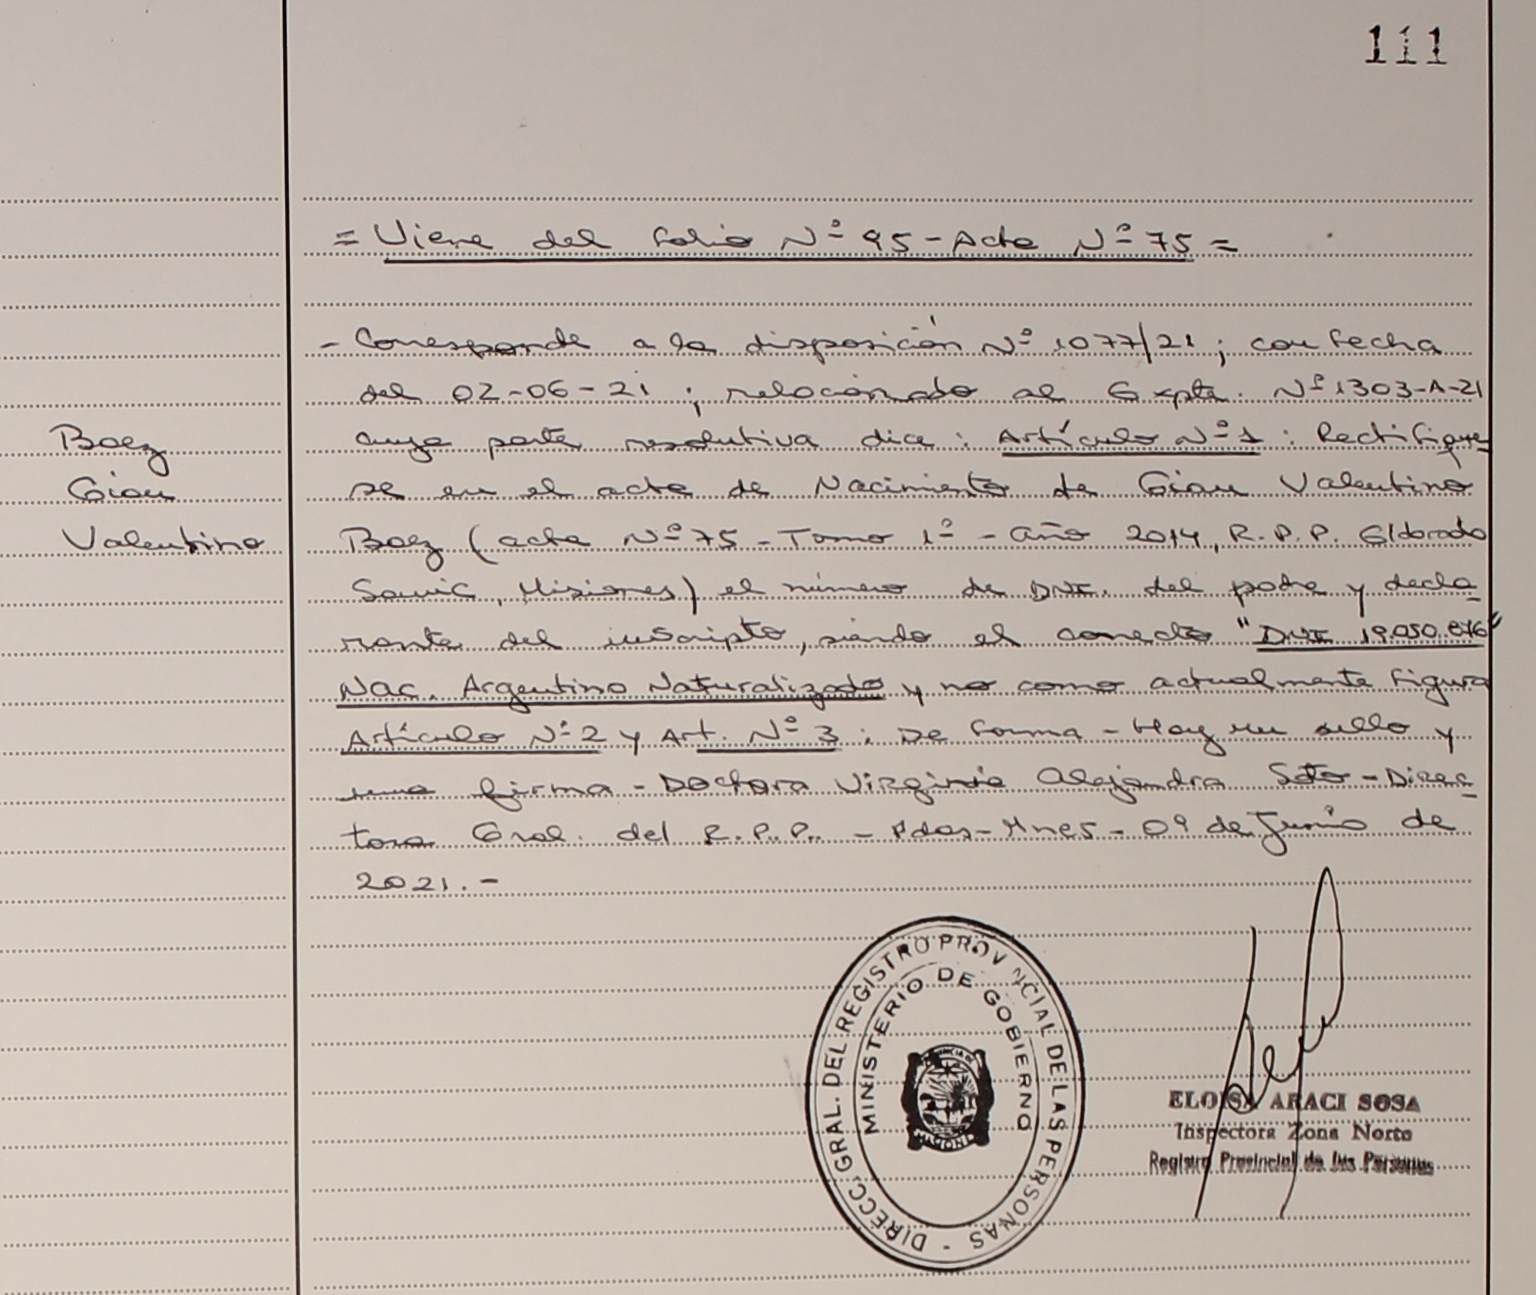 111
= Viene del Folio Nº 95 - Acta Nº 75 =
- Corresponde a la disposición Nº 1077/21 ; con fecha
del 02-06-21 ; relacionado al Expte. Nº 1303-A-21
cuya parte resolutiva dice : Artículo Nº 1 : Rectifique
se en el acta de Nacimiento de Gian Valentino
Baez ( acta Nº 75 - Tomo 1º - año 2014, R.P.P. Eldorado
Samic, Misiones) el número de DNI. del padre y decla-
rante del inscripto, siendo el correcto "DNI 19.050.876"
Nac. Argentino Naturalizado y no como actualmente figura
Artículo Nº 2 y Art. Nº 3 : De forma - Hay un sello y
una firma - Doctora Virginia Alejandra Soto - Direc-
tora Gral. del R.P.P. - Pdas - Mnes - 09 de Junio de
2021. -
Baez
Gian
Valentino
DIRECC. GRAL. DEL REGISTRO PROVINCIAL DE LAS PERSONAS -
MINISTERIO DE GOBIERNO
MISIONES
ELOISA ARACI SOSA
Inspectora Zona Norte
Registro Provincial de las Personas